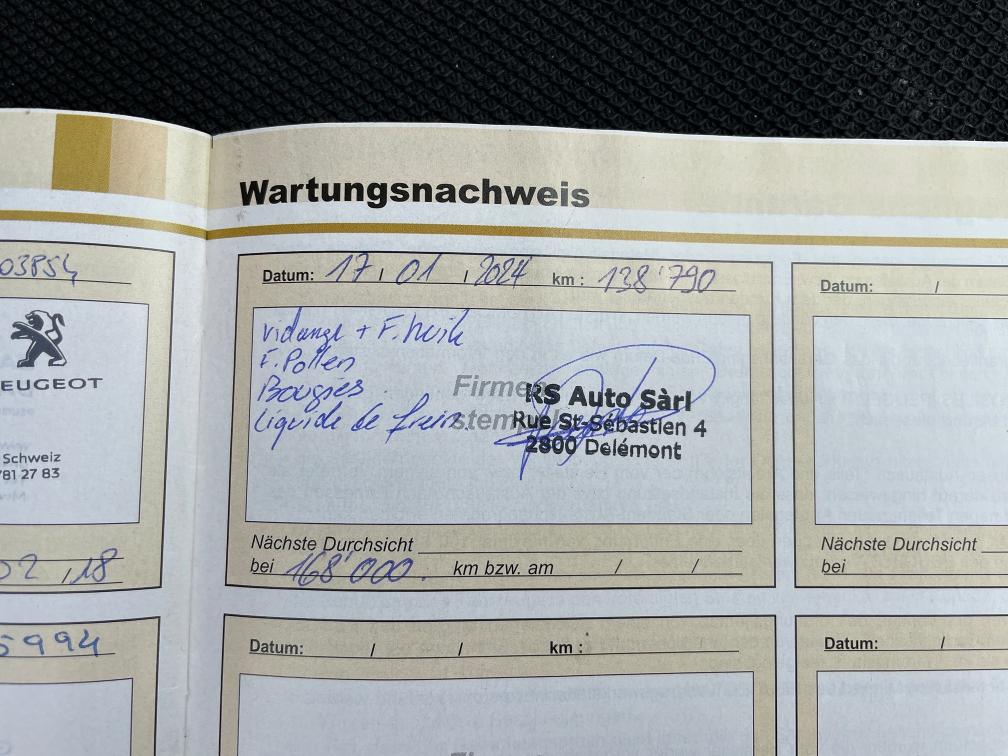 Wartungsnachweis
03854
PEUGEOT
Schweiz
781 27 83
02 / 18
5994
Datum: 17 / 01 / 2024 km : 138'790
vidange + F. huile
F. Pollen
Bougies
Liquide de frein
Firmen
stempel
RS Auto Sàrl
Rue St-Sébastien 4
2800 Delémont
Nächste Durchsicht
bei 168'000. km bzw. am / /
Datum: /
Nächste Durchsicht
bei
Datum: / / km :
Datum: /